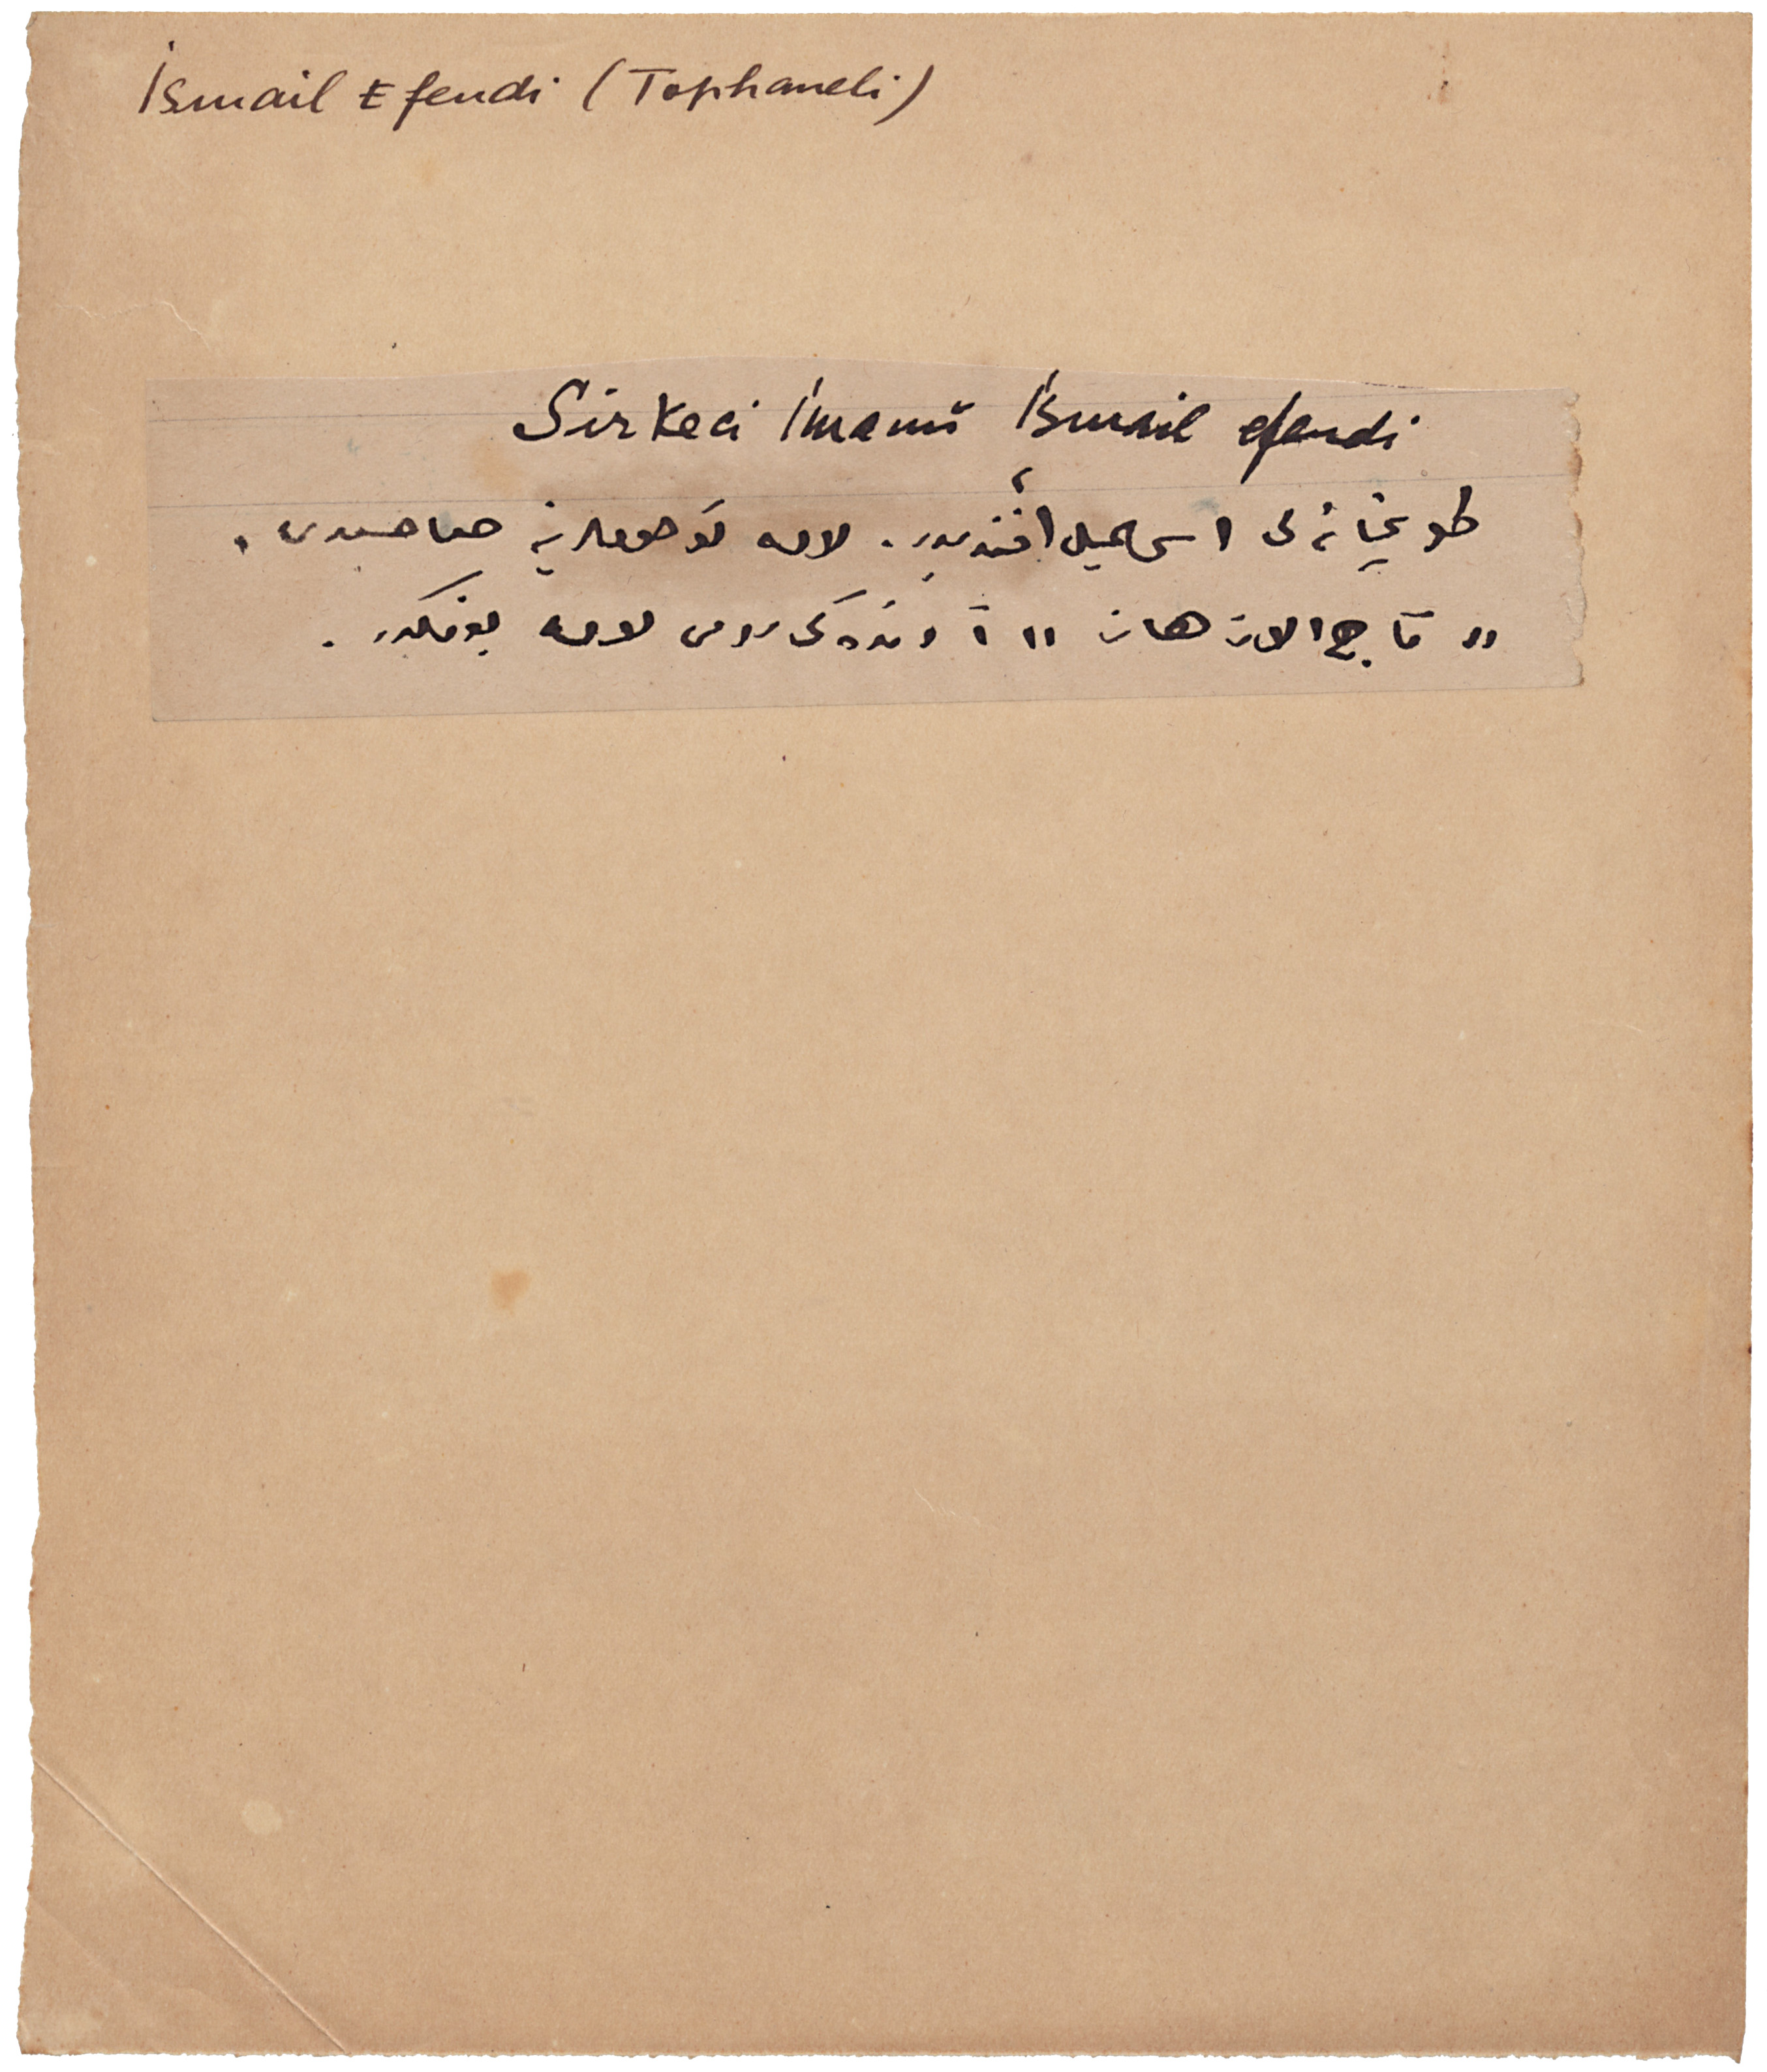 İsmail Efendi (Tophaneli)
Sirkeci İmamı İsmail efendi
طوپخانه لی اسماعیل افندیدر. لاله تخوملرینه صاحبدر.
" تاج الازهار " آ دنده کی رومی لاله بونکدر.